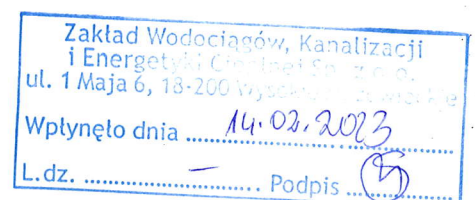 Zakład Wodociągów, Kanalizacji
i Energetyki Cieplnej Sp. z o.o.
ul. 1 Maja 6, 18-200 Wysokie
Wpłynęło dnia 14.02.2023
L.dz. – Podpis